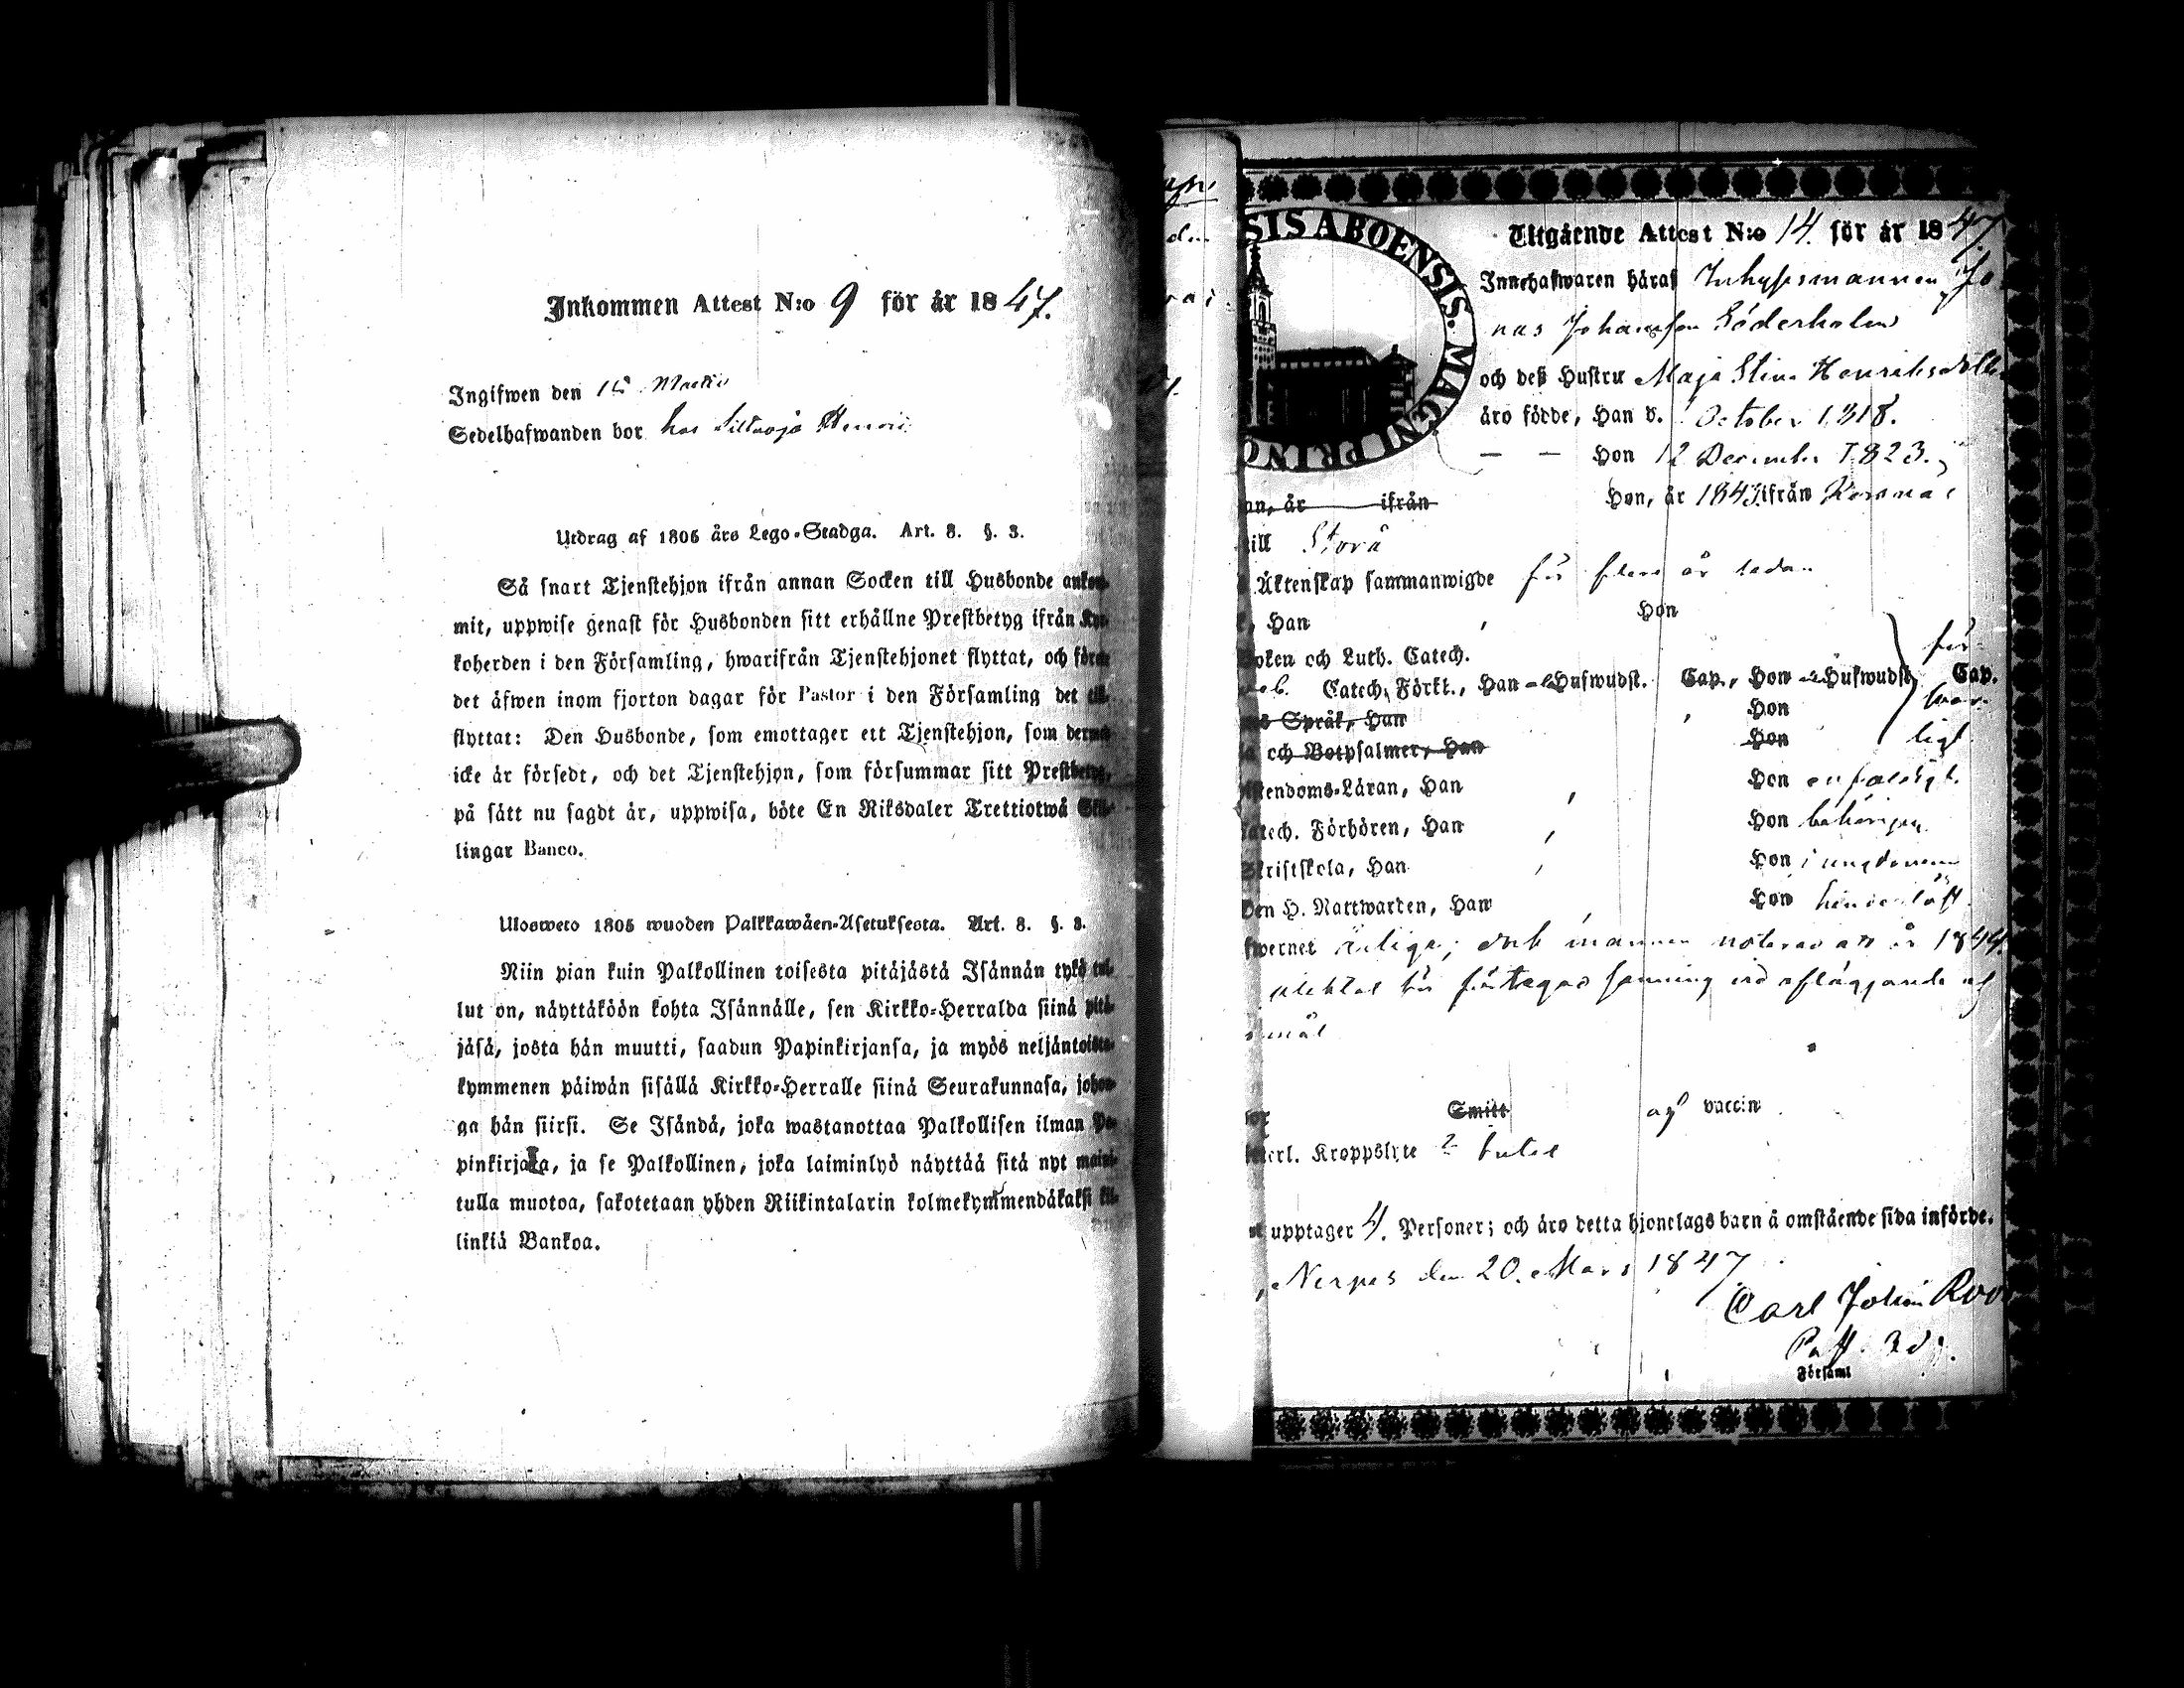 Inkommen Attest N:o 9 för år 1847.
Ingifwen den
Sedelhafwanden bor hos
Utdrag af 1805 års Lego-Stadga. Art. 8. §. 3.
Så snart Tjenstehjon ifrån annan Socken till Husbonde ankom-
mit, uppwise genast för Husbonden sitt erhållne Prestbetyg ifrån Kyr-
koherden i den Församling, hwarifrån Tjenstehjonet flyttat, och förete
det äfwen inom fjorton dagar för Pastor i den Församling det till-
flyttat: Den Husbonde, som emottager ett Tjenstehjon, som dermed
icke är försedt, och det Tjenstehjon, som försummar sitt Prestbetyg,
på sätt nu sagdt är, uppwisa, böte En Riksdaler Trettiotwå Skil-
lingar Banco.
Ulosweto 1805 wuoden Palkkawäen-Asetuksesta. Art. 8. §. 3.
Niin pian kuin Palkollinen toisesta pitäjästä Isännän tykö tul-
lut on, näyttäköön kohta Isännälle, sen Kirkko-Herralda siinä pitä-
jäsä, josta hän muutti, saadun Papinkirjansa, ja myös neljäntoista-
kymmenen päiwän sisällä Kirkko-Herralle siinä Seurakunnasa, johon-
ga hän siirsi. Se Isändä, joka wastanottaa Palkollisen ilman Pa-
pinkirjata, ja se Palkollinen, joka laiminlyö näyttää sitä nyt maini-
tulla muotoa, sakotetaan yhden Riikintalarin kolmekymmendäkaksi kil-
linkiä Bankoa.
SIS ABOENSIS. MAGNI PRINC
Utgående Attest N:o 14. för år 1847.
Innehafwaren häraf Inhysesmannen Jo-
nas Johansson Söderholm
och deß Hustru Maja Stina Henriksdotter
äro födde, Han d. October 1818.
— — Hon 12 December 1823.
on, år ifrån Hon, år 1843 ifrån Korsnäs
till Storå
Äktenskap sammanwigde för flera år sedan
Han , Hon
boken och Luth. Catech. för-
Catech. Förkl., Han Hufwudst. Cap., Hon Hufwudst. Cap.
Språk, Han , Hon swar-
och Botpsalmer, Han Hon ligt
stendoms-Läran, Han , Hon enfaldigt
atech. Förhören, Han , Hon behörigen
Skriftskola, Han , Hon i ungdomen
den H. Nattwarden, Han , Hon hinderlöst
fwernet ärliga; dock mannen noteras att år 1844
pliktat för företagen sanning wid afläggande af
mål
Smitt af vaccin
terl. Kroppslyte
upptager 4. Personer; och äro detta hjonelags barn å omstående sida införde.
Nerpes den 20. Mars 1847
Carl Johan
Past.
Församl